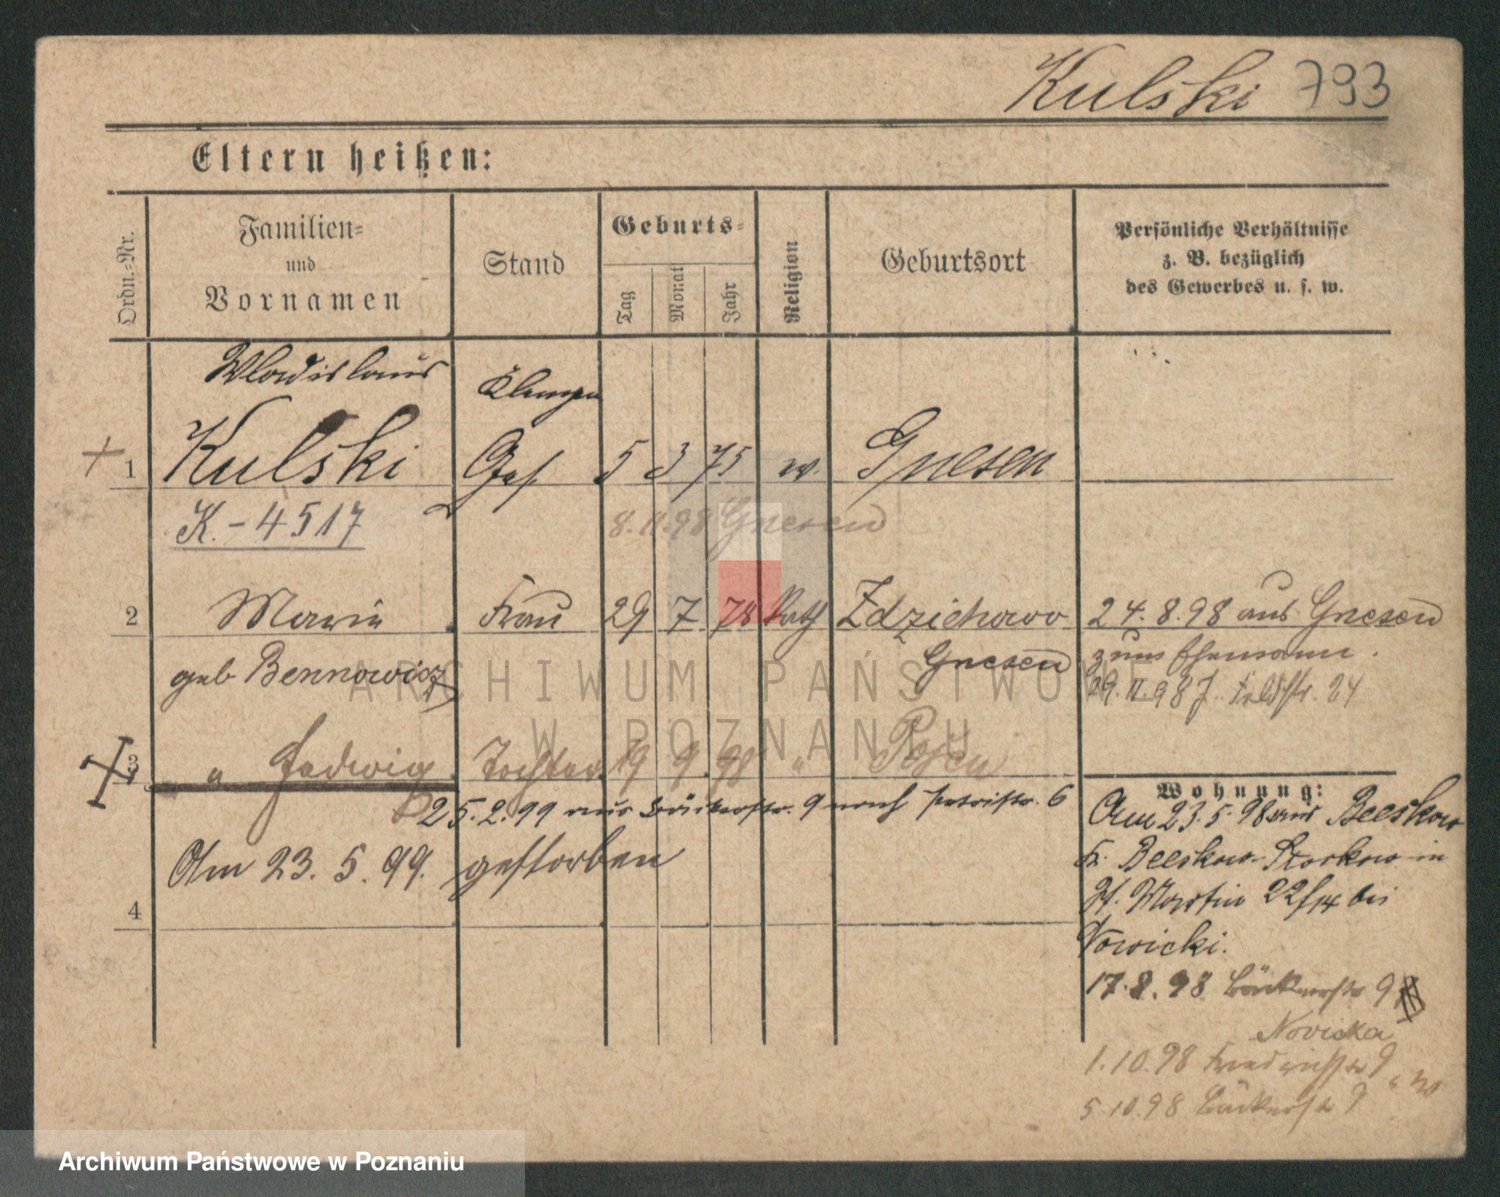 Kulski 793
Eltern heißen:
Ordn.-Nr.
Familien-
und
Vornamen
Stand
Geburts-
Tag
Monat
Jahr
Religion
Geburtsort
Persönliche Verhältnisse
z. B. bezüglich
des Gewerbes u. s. w.
Wladislaus
1 Kulski 5 3 75 Gnesen
K.-4517
8.11.98 Gnesen
2 Marie Frau 29 7 78 Kath Zdziechowo 24.8.98 aus Gnesen
geb Bennowicz Gnesen zum Ehemann.
3 " Hedwig Tochter 19 9 98 " Posen
25.2.99 aus Bäckerstr. 9 nach Petristr. 6
Am 23.5.99. gestorben
4
Wohnung:
Am 23.5.98 aus Beeskow
Kr. Beeskow-Storkow in
St. Martin 22 bei
Nowicki.
17.8.98 Bäckerstr 9
Novicka
1.10.98 9
5.10.98 Bäckerstr 9
ARCHIWUM PAŃSTWOWE
W POZNANIU
Archiwum Państwowe w Poznaniu